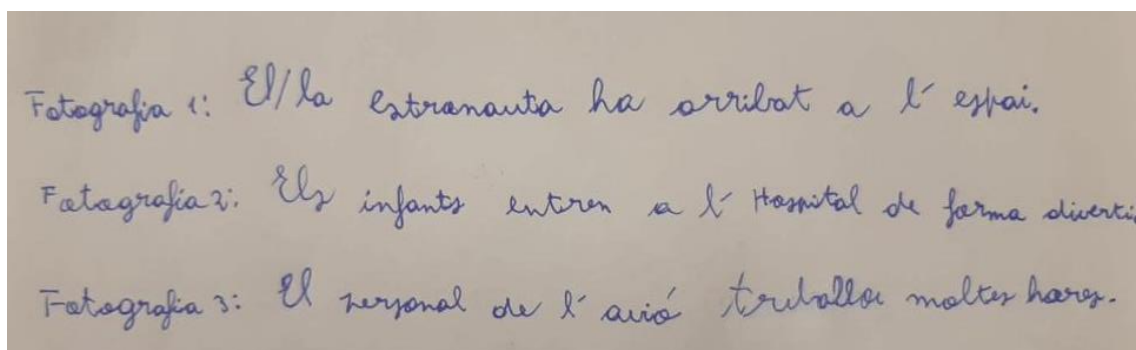 Fotografia 1: El/la estranauta ha arribat a l' espai.
Fotografia 2: Els infants entren a l' Hospital de forma diverti
Fotografia 3: El personal de l' avió treballa moltes hores.